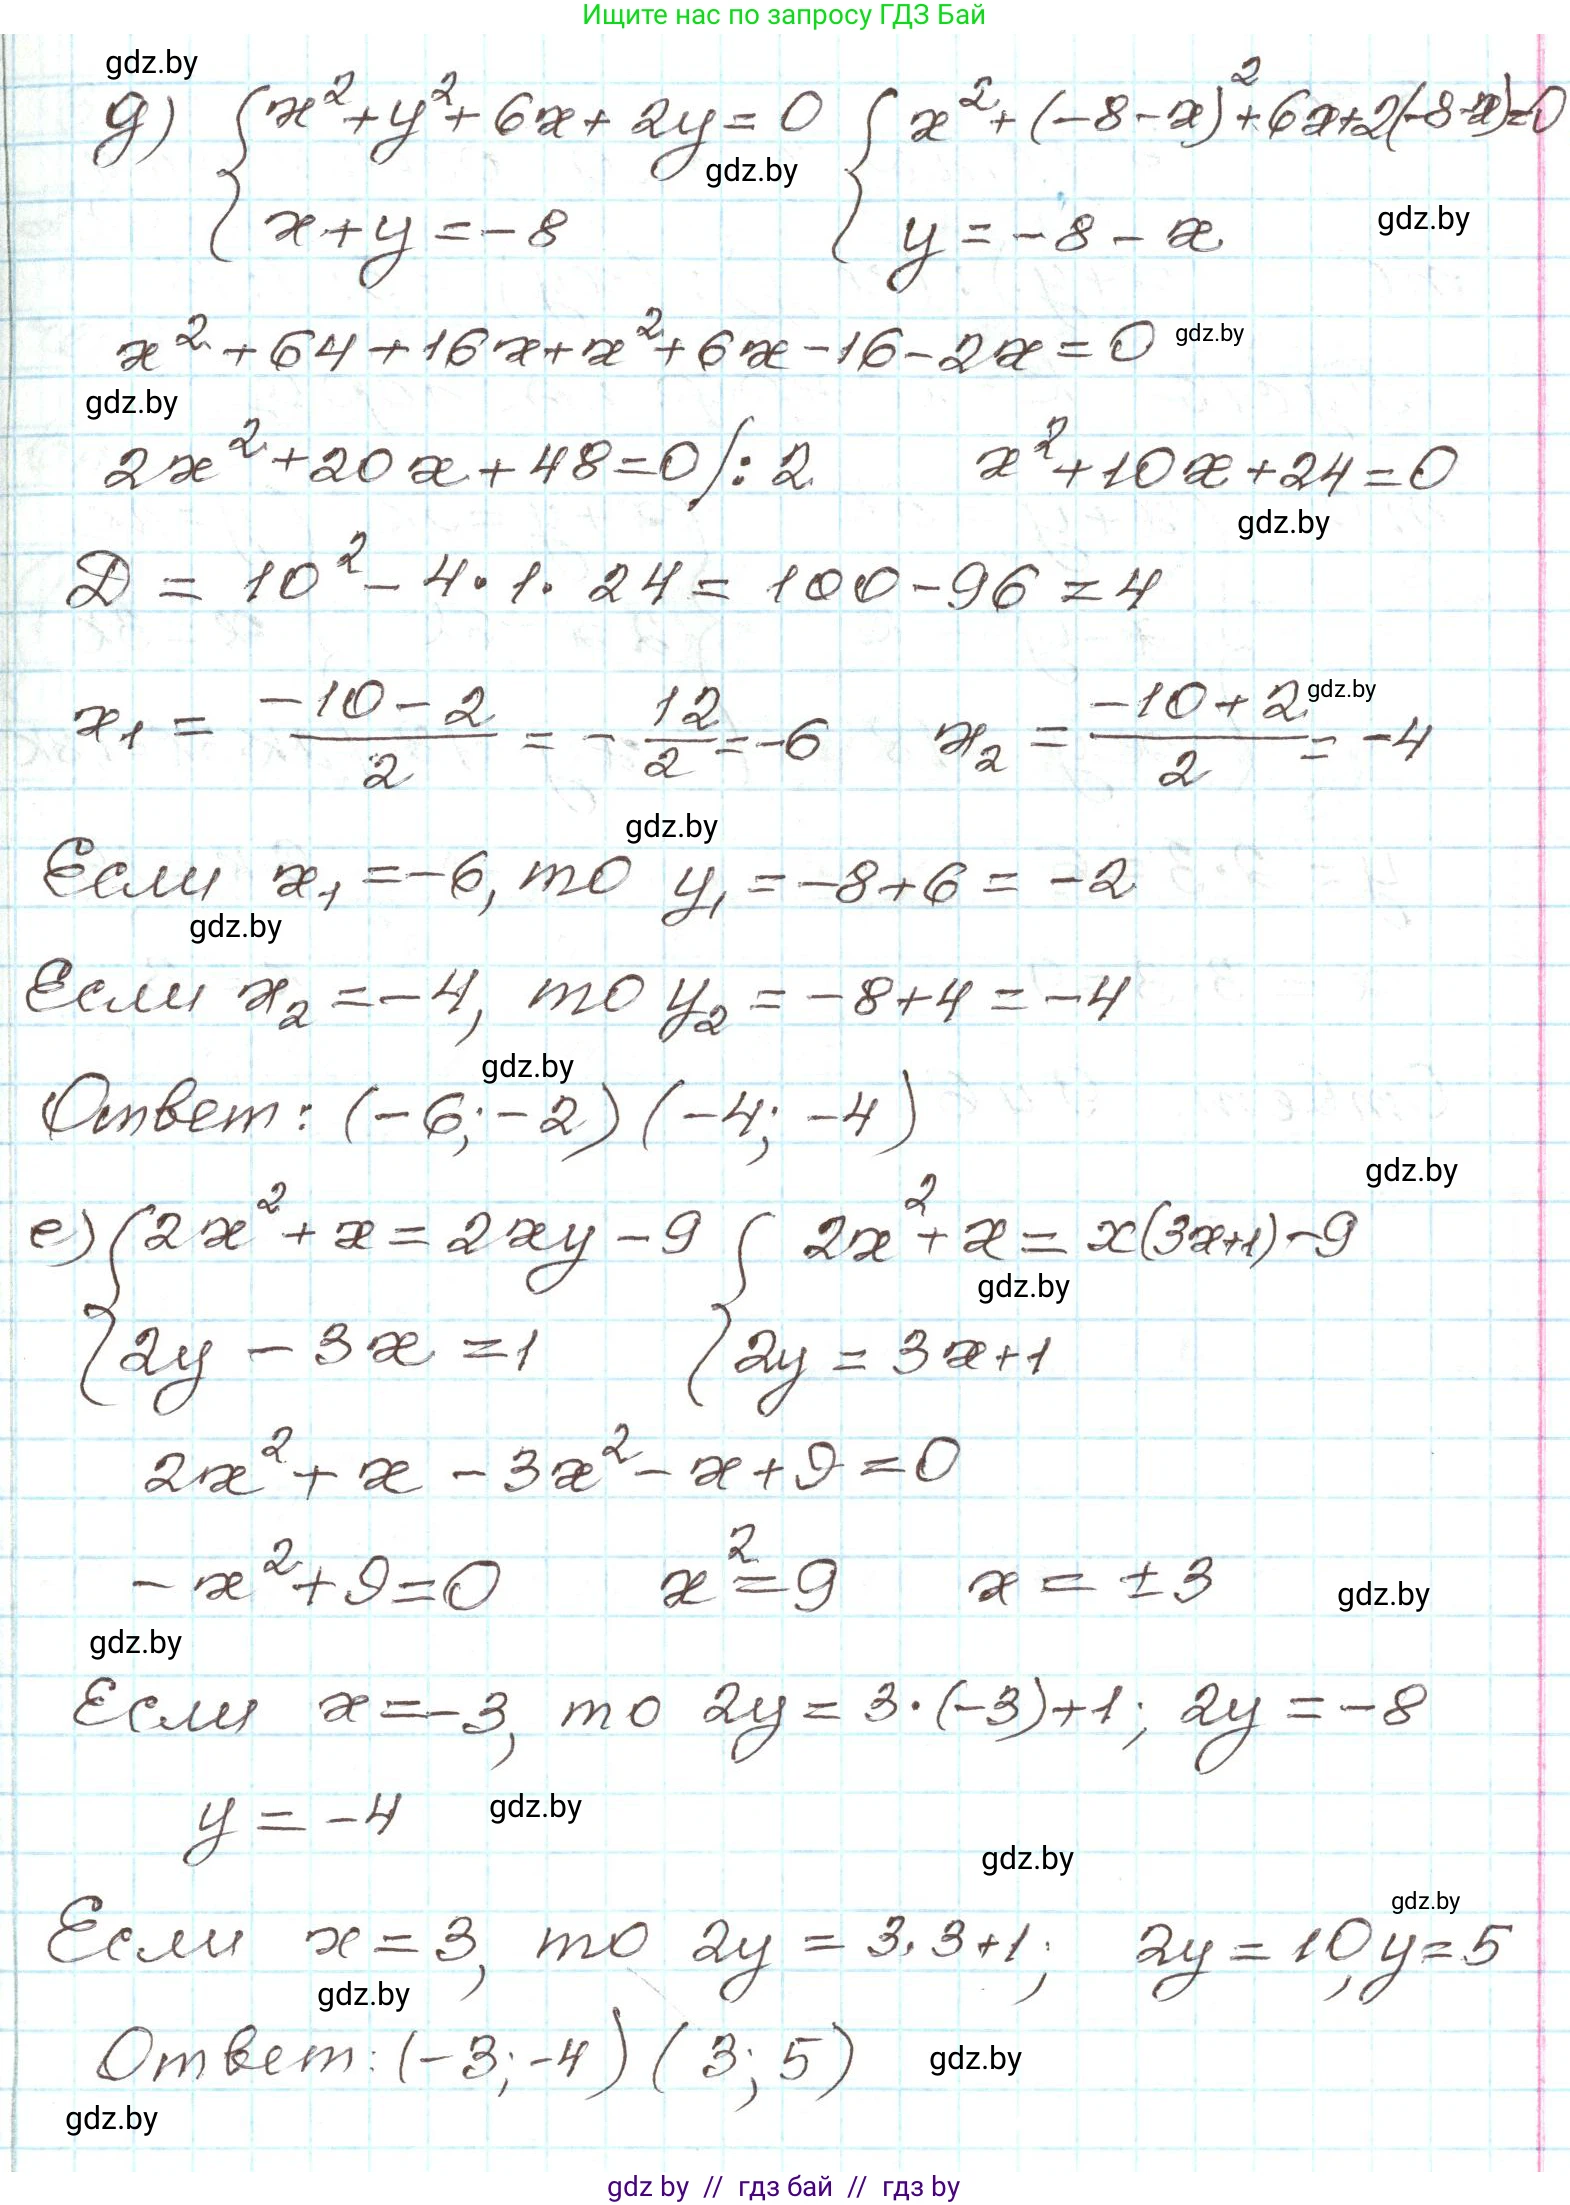 Ищите нас по запросу ГДЗ Бай
gdz.by
д) { x² + y² + 6x + 2y = 0 { x² + (-8 - x)² + 6x + 2(-8 - x) = 0
gdz.by
x + y = -8 y = -8 - x
gdz.by
x² + 64 + 16x + x² + 6x - 16 - 2x = 0
gdz.by
gdz.by
2x² + 20x + 48 = 0 / : 2 x² + 10x + 24 = 0
gdz.by
Д = 10² - 4 · 1 · 24 = 100 - 96 = 4
x₁ = (-10 - 2)/2 = - 12/2 = -6 x₂ = (-10 + 2)/2 = -4
gdz.by
gdz.by
Если x₁ = -6, то y₁ = -8 + 6 = -2
gdz.by
Если x₂ = -4, то y₂ = -8 + 4 = -4
gdz.by
Ответ: (-6; -2) (-4; -4)
gdz.by
е) { 2x² + x = 2xy - 9 { 2x² + x = x(3x+1) - 9
gdz.by
2y - 3x = 1 2y = 3x + 1
2x² + x - 3x² - x + 9 = 0
-x² + 9 = 0 x² = 9 x = ± 3
gdz.by
gdz.by
Если x = -3, то 2y = 3 · (-3) + 1; 2y = -8
y = -4
gdz.by
gdz.by
gdz.by
Если x = 3, то 2y = 3 · 3 + 1; 2y = 10, y = 5
gdz.by
Ответ: (-3; -4) (3; 5)
gdz.by
gdz.by
gdz by // гдз бай // гдз by